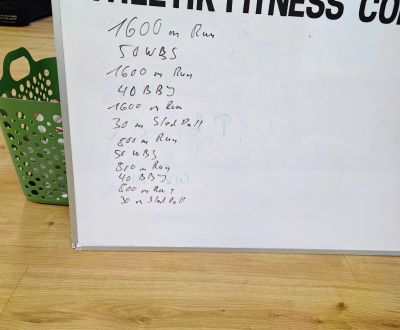 FITNESS
1600 m Run
50 WBS
1600 m Run
40 BBJ
1600 m Run
30 m Sled Pull
800 m Run
50 WBS
800 m Run
40 BBJ
800 m Run
30 m Sled Pull